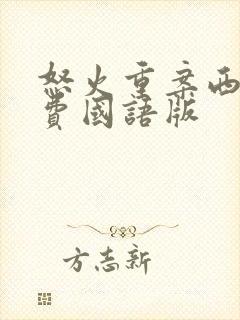 怒火重案西
費國語版
方志新